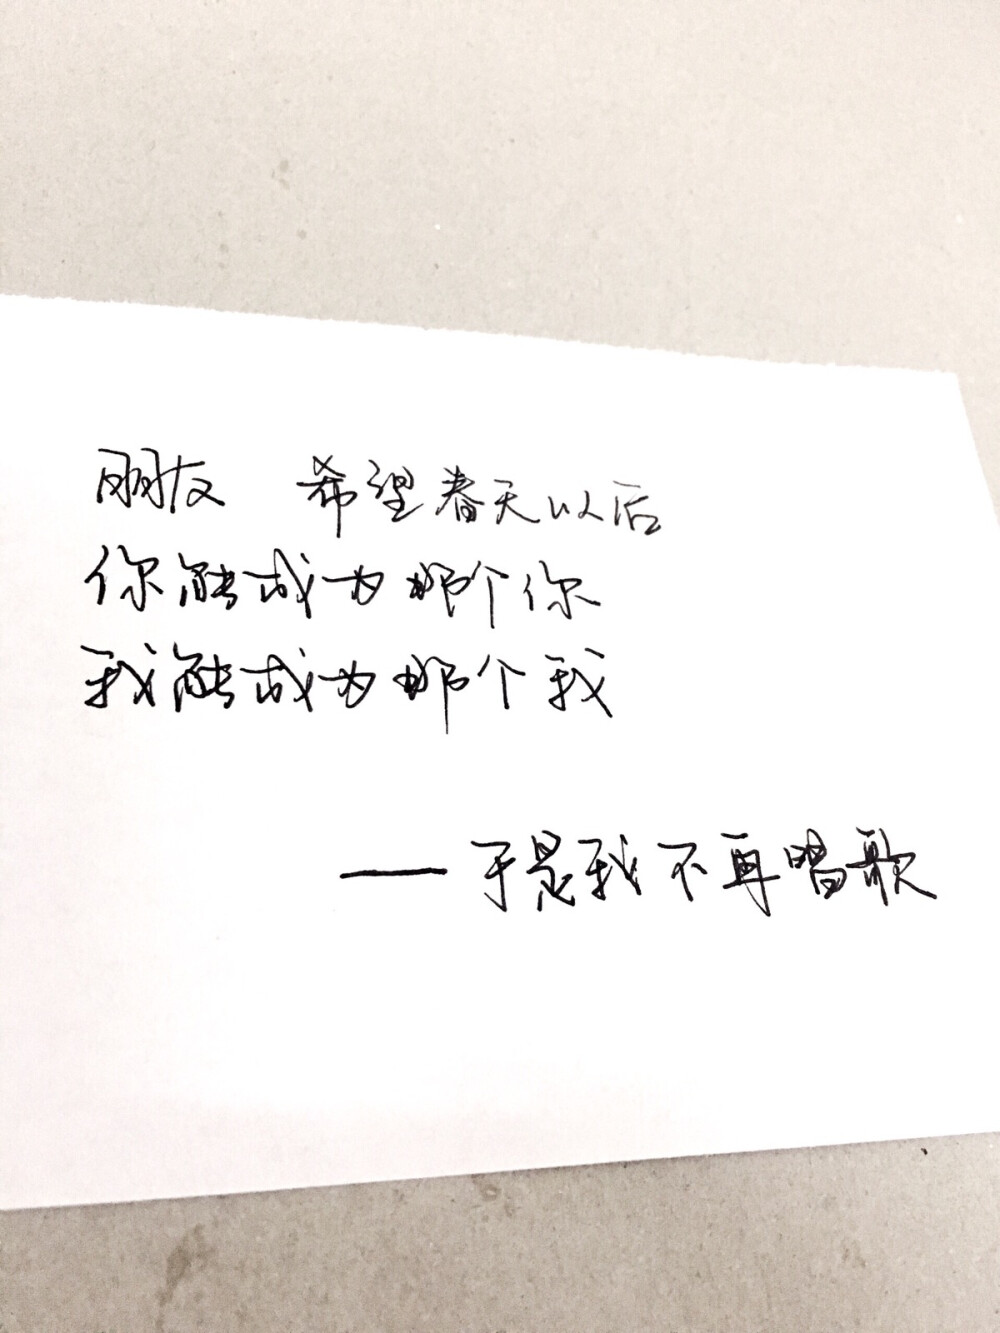 朋友 希望春天以后
你能成为那个你
我能成为那个我
——于是我不再唱歌